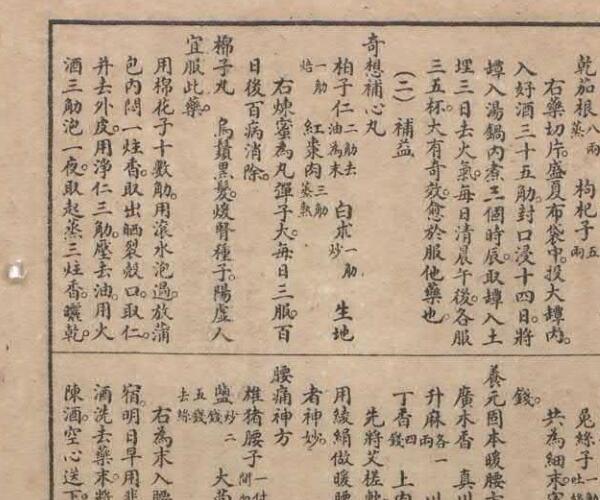 乾茄根八兩蒸　枸杞子五兩
右藥切片。盛夏布袋中。投大罈內。
入好酒三十五觔。封口浸十四日。將
罈入湯鍋內煮三個時辰。取罈入土
埋三日去火氣。每日清晨午後各服
三五杯。大有奇效。愈於服他藥也。
（二）　補益
奇想補心丸
柏子仁二觔去油為末　白朮一觔炒　生地
一觔焙　紅棗肉三觔蒸熟
右煉蜜為丸。彈子大。每日三服。百
日後百病消除。
棉子丸　烏鬚黑髮。煖腎種子。陽虛人
宜服此藥。
用棉花子十數觔。用滾水泡過。放蒲
包內悶一炷香。取出晒裂殼口。取仁。
并去外皮。用淨仁三觔。壓去油。用火
酒三觔泡一夜。取起蒸三炷香。曬乾。
兔絲子
共為細末
錢。
養元固本暖腰方
廣木香　真川
升麻各一兩
丁香四錢　上肉
先將艾搓軟
用綾絹做暖腰
者神妙。
腰痛神方
雄猪腰子一付
鹽炒二錢　大茴
五錢去絲
右為末入腰
宿。明日早用
酒洗去藥末。
陳酒空心送下